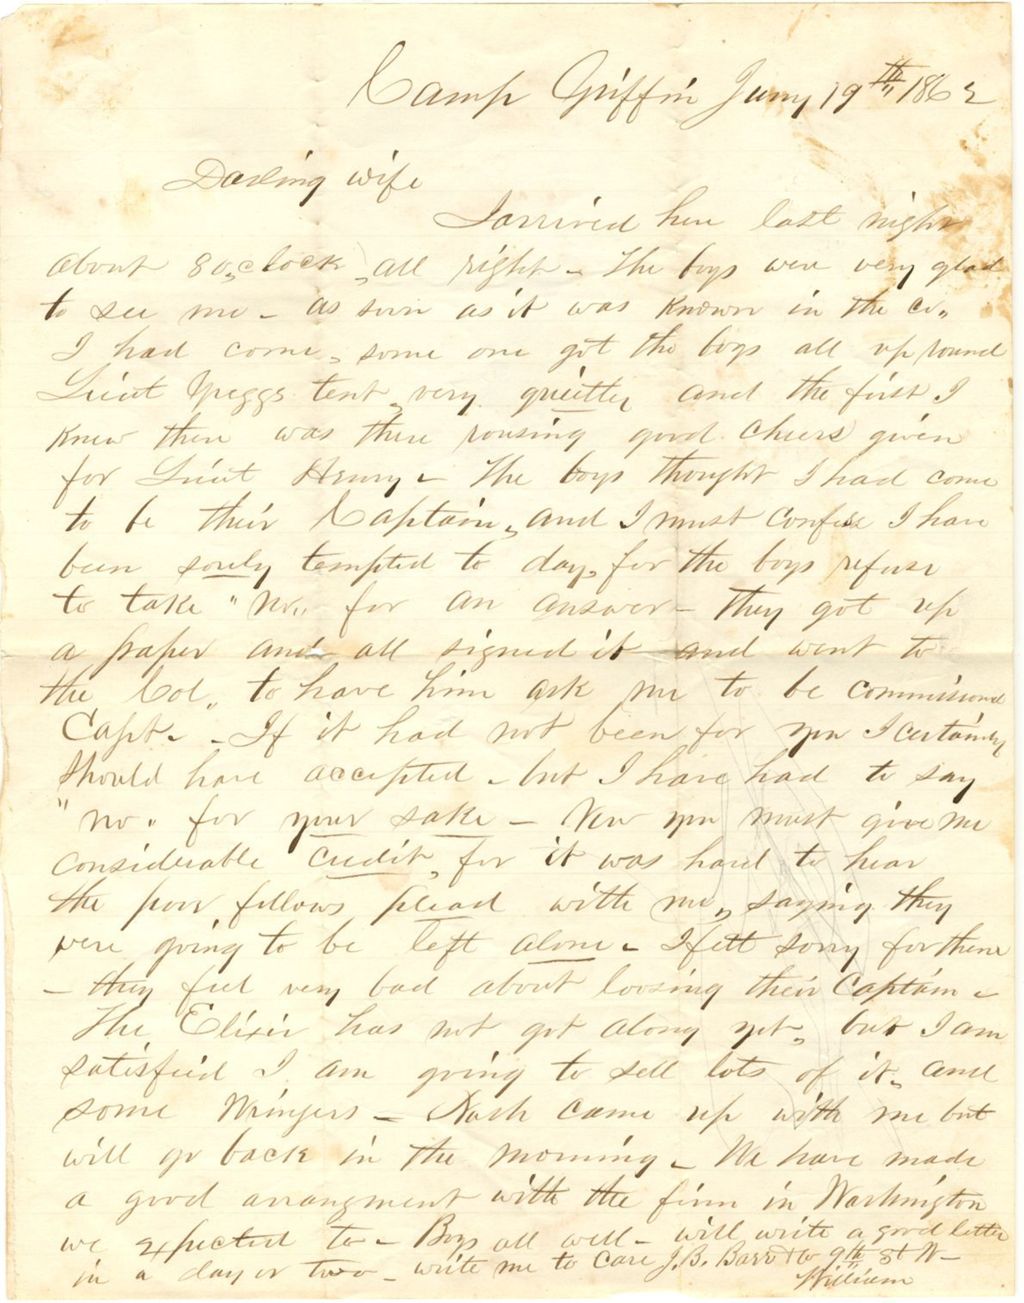 Camp Griffin Jany 19th 1862
Darling wife
I arrived here last night
about 8 o,clock, all right - The boys were very glad
to see me - as soon as it was known in the co,,
I had come, some one got the boys all up round
Lieut Greggs tent, very quietly and the first I
knew there was three rousing good cheers given
for Lieut Henry - The boys thought I had come
to be their Captain, and I must confess I have
been sorely tempted to day, for the boys refuse
to take "no,, for an answer - they got up
a paper and all signed it and went to
the Col,, to have him ask me to be commissioned
Capt. - If it had not been for you I certainly
should have accepted - but I have had to say
"no,, for your sake - Now you must give me
considerable credit, for it was hard to hear
the poor fellows plead with me, saying they
were going to be left alone - I felt sorry for them
- they feel very bad about loosing their Captain -
The Elixir has not got along yet, but I am
satisfied I am going to sell lots of it, and
some Wringers - Nash came up with me but
will go back in the morning - We have made
a good arrangment with the firm in Washington
we expected to - Boys all well - will write a good letter
in a day or two - write me to care J. B. 9th st W -
William